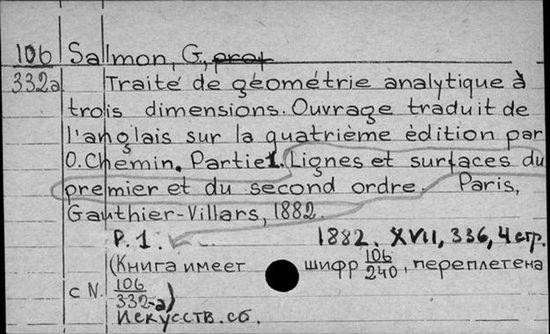 106 Salmon, G, prof
332a Traité de géométrie analytique à
trois dimensions. Ouvrage traduit de
l'anglais sur la quatrième édition par
O. Chemin. Partie 1. Lignes et surfaces du
premier et du second ordre. Paris,
Gauthier-Villars, 1882.
P. 1. 1882. XVII, 336, 4 стр.
(Книга имеет шифр 106/240, переплетена
с N. 106/332-a)
Искусств. сб.